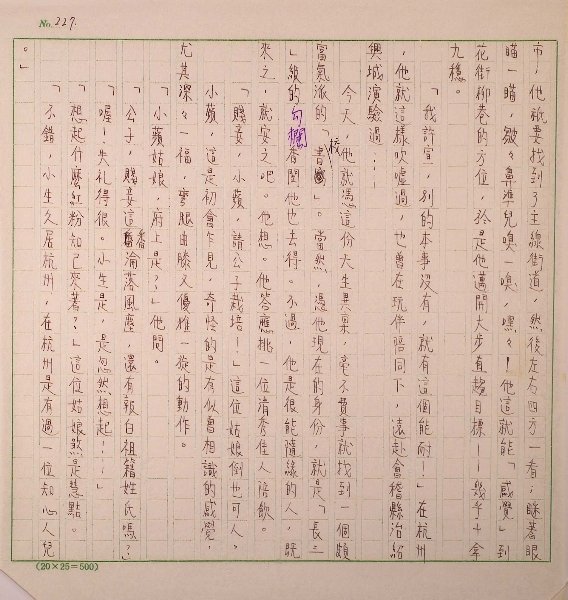 No. 227.
市，他祇要找到了主線街道，然後左右四方一看，瞇著眼
瞄一瞄，皺々鼻準兒嗅、嗅、嘿々！他這就能「感覺」到
花街柳巷的方位，於是他邁開大步直趨目標——幾乎十拿
九穩。
「我許宣，別的本事沒有，就有這個能耐！」在杭州
，他就這樣吹噓過，也曾在玩伴陪同下，遠赴會稽縣治紹
興城演驗過……
今天，他就憑這份天生異稟，毫不費事就找到一個頗
富氣派的「書校」。當然，憑他現在的身份，就是「長三
」級的勾欄香閨他也去得。不過，他是很能隨緣的人，既
來之，就安之吧。他想。他答應挑一位清秀佳人陪飲。
「賤妾，小蘋，請公子栽培！」這位姑娘倒也可人。
小蘋，這是初會乍見，奇怪的是有似曾相識的感覺，
尤其深々一福，彎腿曲膝又優雅一旋的動作。
「小蘋姑娘，府上是？」他問。
「公子，賤妾這番淪落風塵，還有顏白祖籍姓氏嗎？」
「喔！失礼得很。小生是，是忽然想起！——」
「想起什麼紅粉知己來著？」這位姑娘煞是慧點。
「不錯，小生久居杭州，在杭州是有過一位知心人兒
。」
(20×25=500)